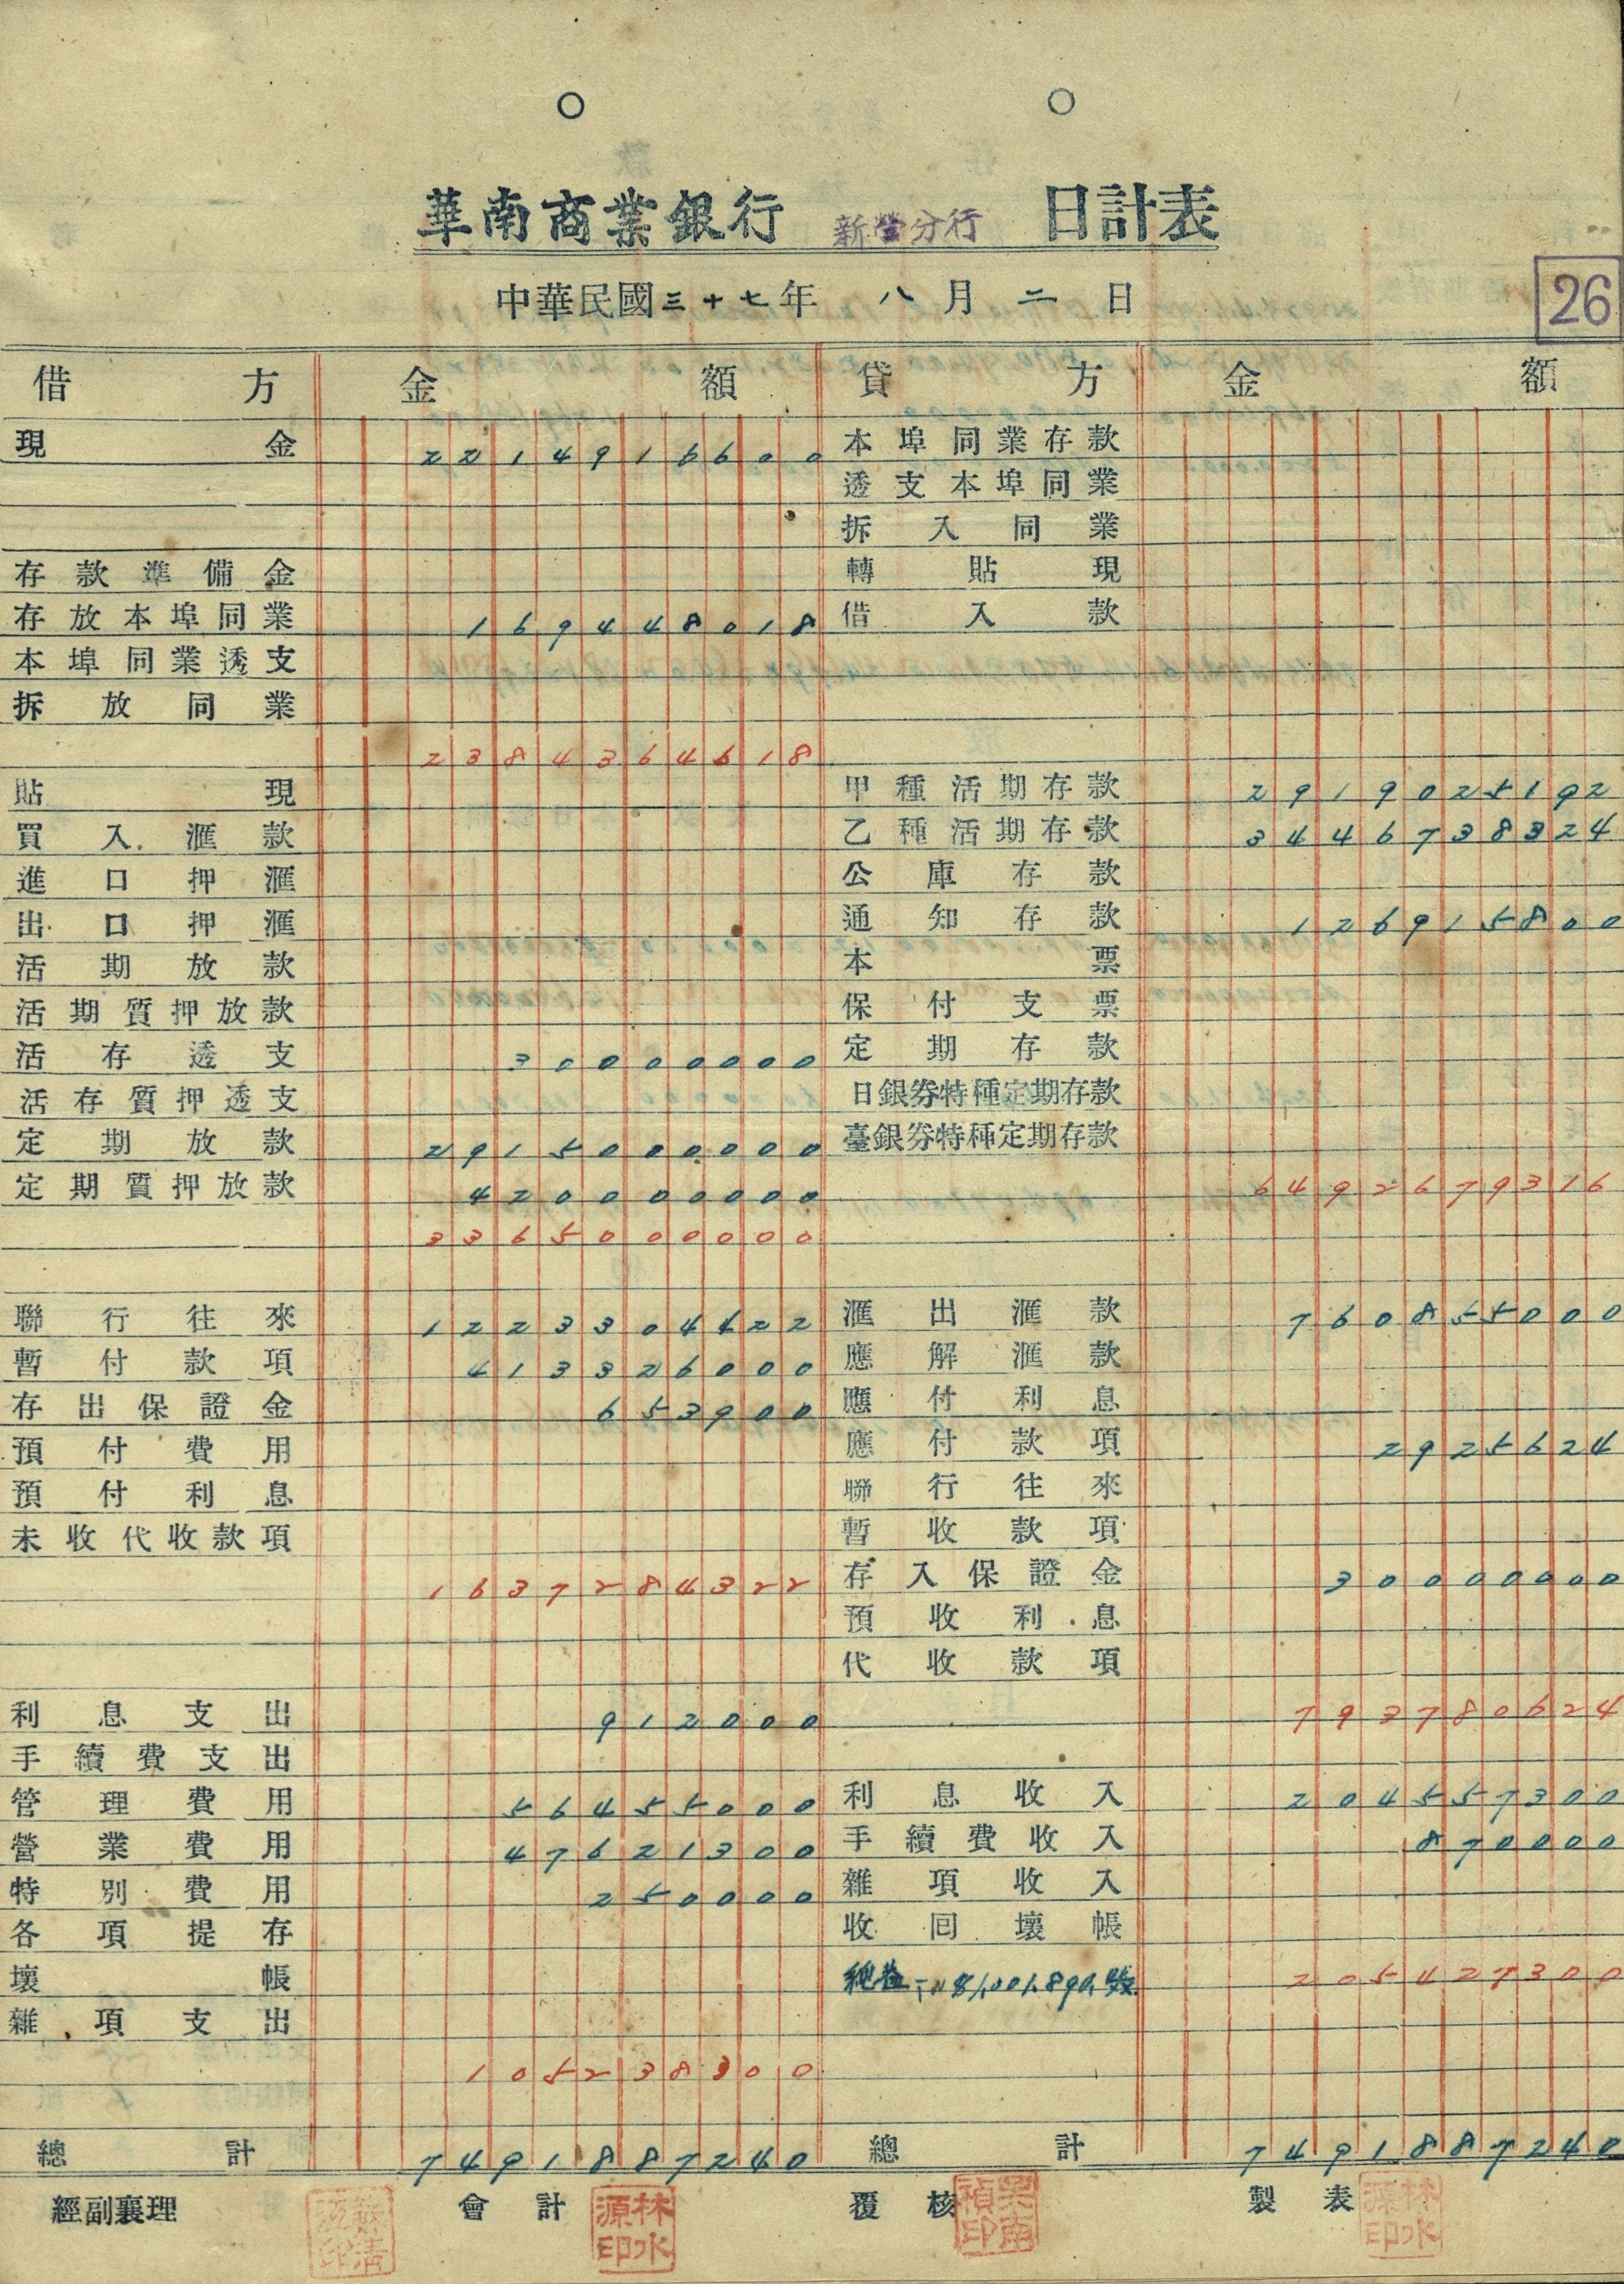 華南商業銀行 新營分行 日計表
中華民國三十七年 八月二日
26
借方 金額 貸方 金額
現金 2214916600 本埠同業存款
透支本埠同業
拆入同業
存款準備金 轉貼現
存放本埠同業 169448018 借入款
本埠同業透支
拆放同業
2384364618
貼現 甲種活期存款 2919025192
買入滙款 乙種活期存款 3446738324
進口押滙 公庫存款
出口押滙 通知存款 126915800
活期放款 本票
活期質押放款 保付支票
活存透支 30000000 定期存款
活存質押透支 日銀券特種定期存款
定期放款 2915000000 臺銀券特種定期存款
定期質押放款 420000000 6492679316
3365000000
聯行往來 1223304422 滙出滙款 760855000
暫付款項 413326000 應解滙款
存出保證金 653900 應付利息
預付費用 應付款項 2925624
預付利息 聯行往來
未收代收款項 暫收款項
1637284322 存入保證金 30000000
預收利息
代收款項
利息支出 912000 793780624
手續費支出
管理費用 56455000 利息收入 204557300
營業費用 47621300 手續費收入 870000
特別費用 250000 雜項收入
各項提存 收回壞帳
壞帳 純益 1,001,890 205427300
雜項支出
105238300
總計 7491887240 總計 7491887240
經副襄理 會計 林水源印 覆核 吳南禎印 製表 林水源印